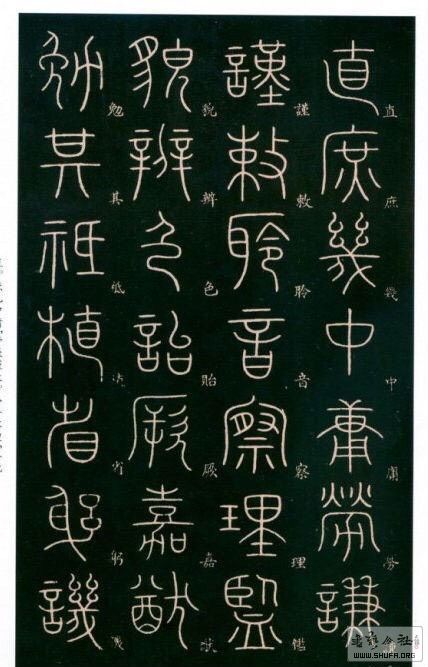 直庶幾中庸勞謙
直庶幾中庸勞
謹敕聆音察理監
謹敕聆音察理鑑
貌辨色詒厥嘉猷
貌辨色貽厥嘉猷
勉其祗植省躬譏
勉其祗省躬譏
WWW.SHUFA.ORG